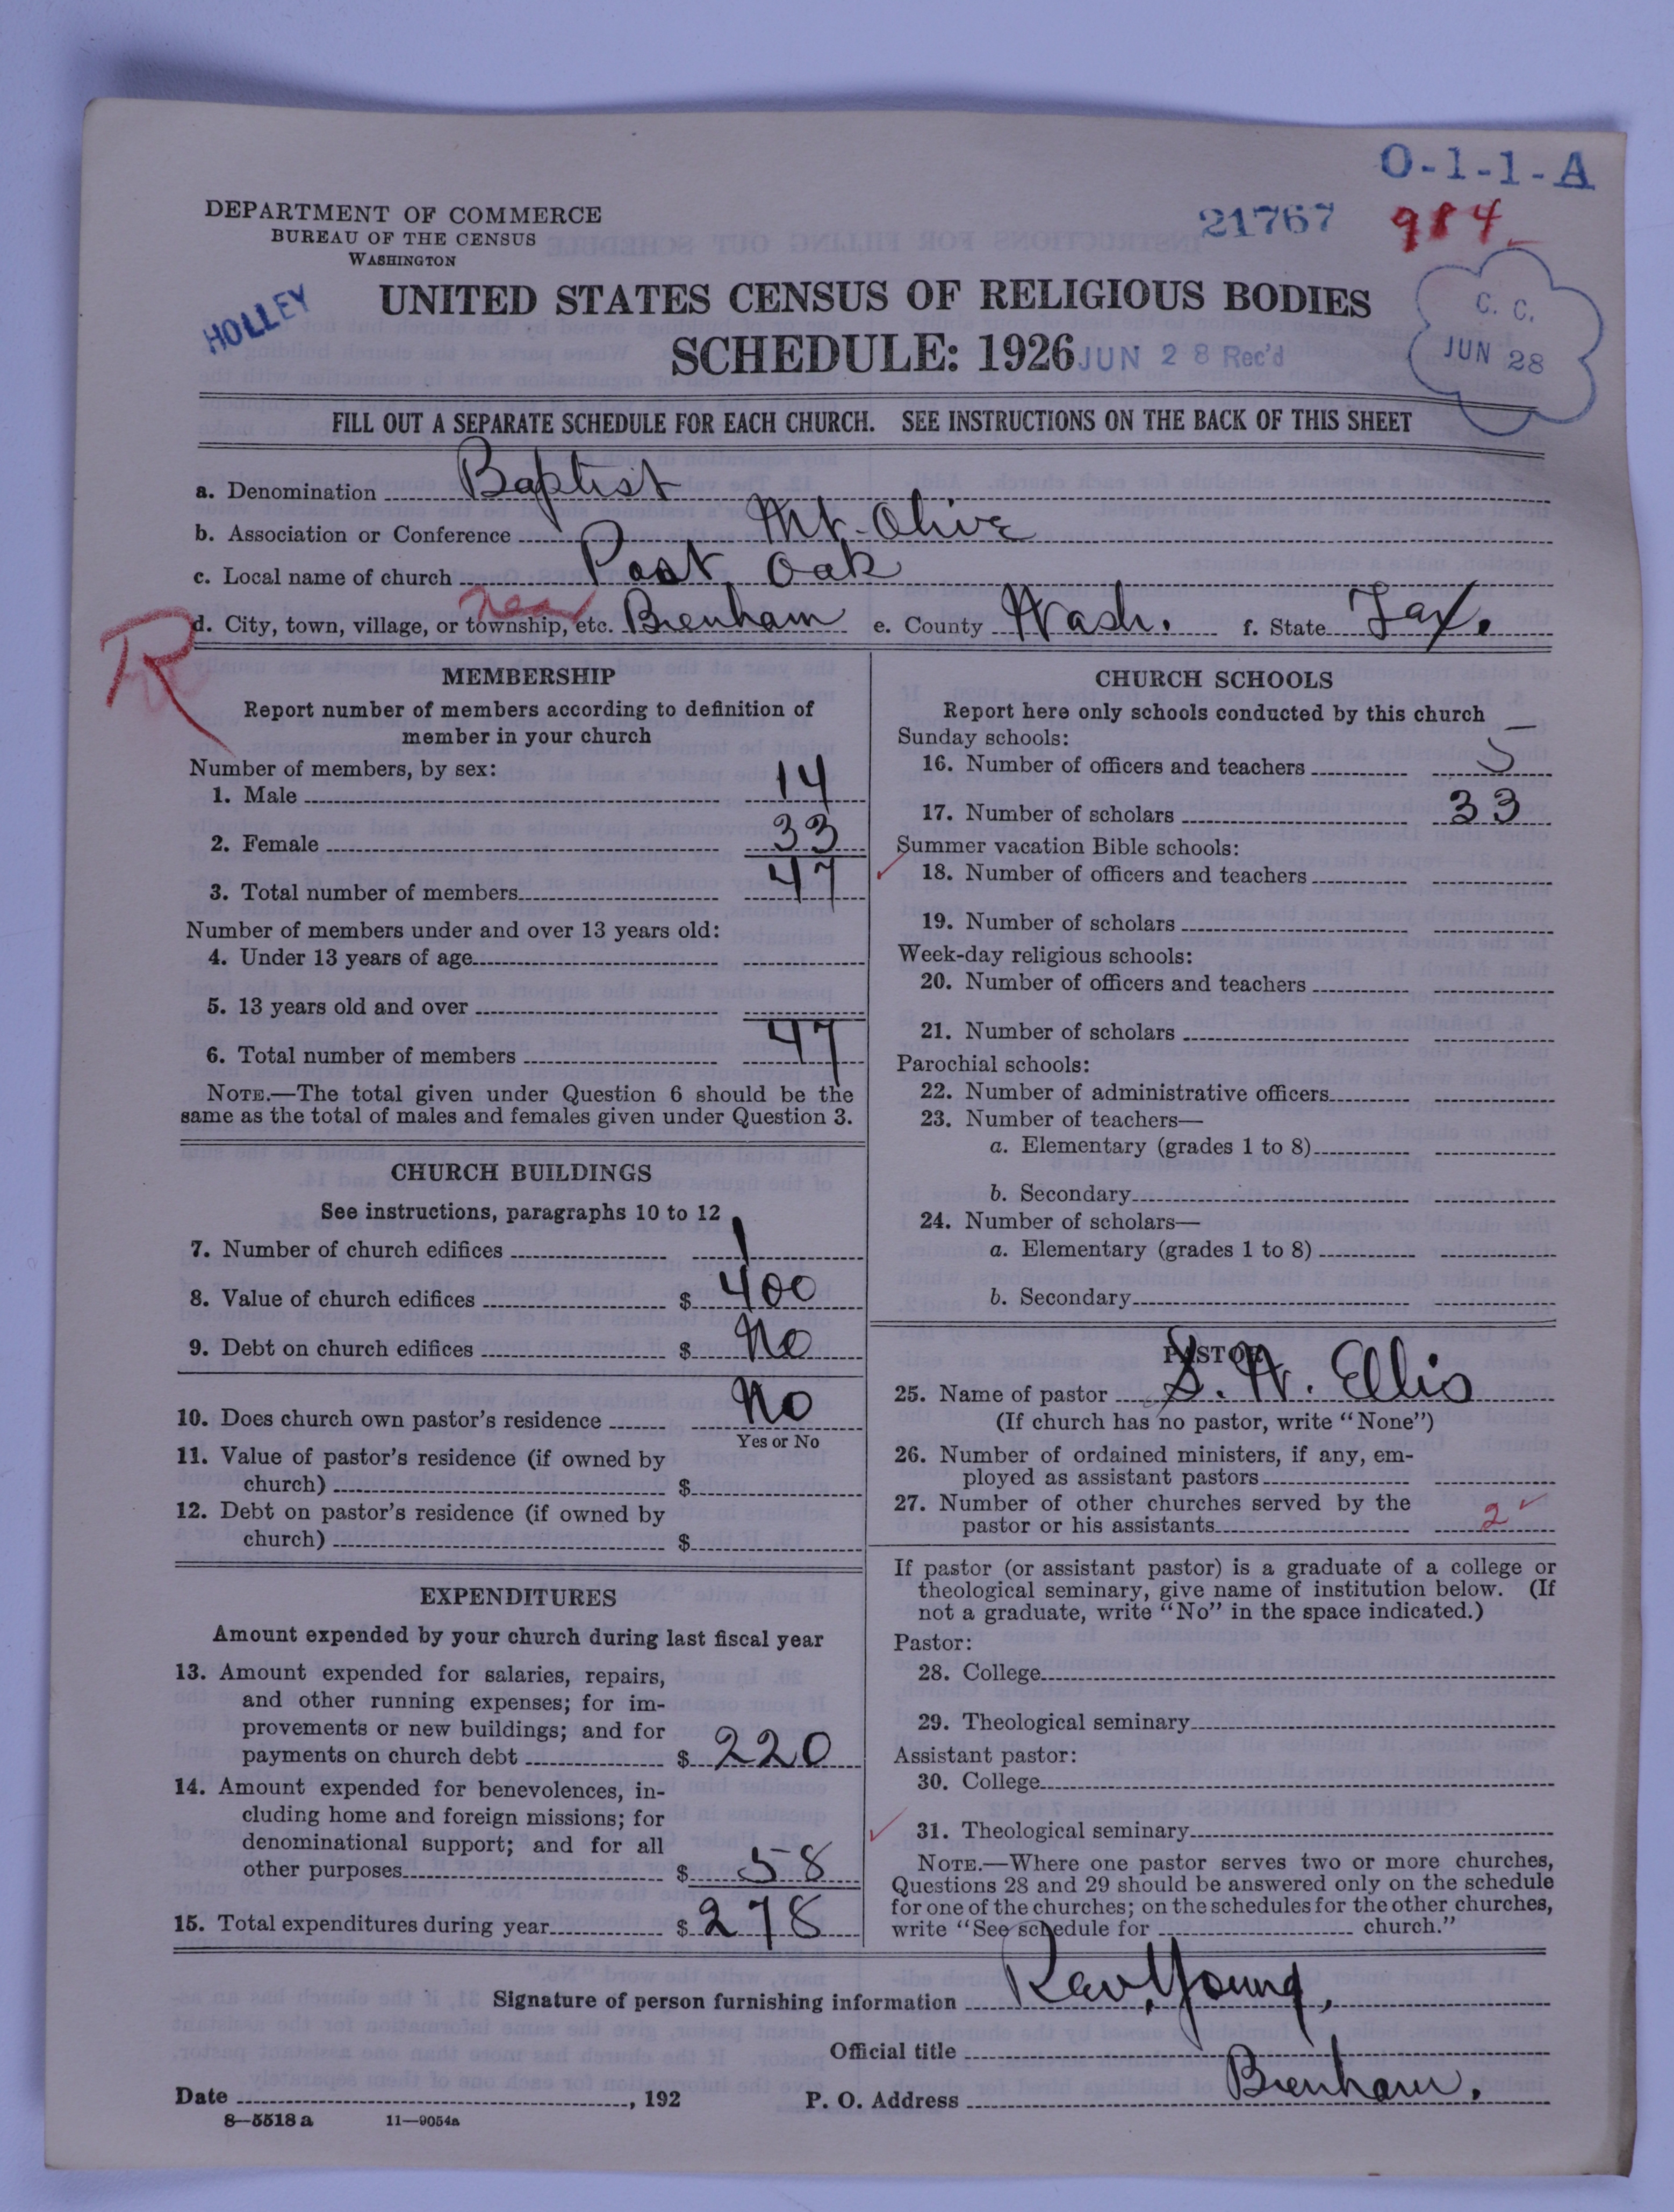 O-1-1-A
DEPARTMENT OF COMMERCE
BUREAU OF THE CENSUS
WASHINGTON
21767 984
HOLLEY
UNITED STATES CENSUS OF RELIGIOUS BODIES
SCHEDULE: 1926 JUN 28 Rec'd
C. C.
JUN 28
FILL OUT A SEPARATE SCHEDULE FOR EACH CHURCH. SEE INSTRUCTIONS ON THE BACK OF THIS SHEET
a. Denomination Baptist
b. Association or Conference Mt. Olive
c. Local name of church Post Oak
near
d. City, town, village, or township, etc. Brenham e. County Wash. f. State Tax.
R
MEMBERSHIP
Report number of members according to definition of
member in your church
Number of members, by sex:
1. Male 14
2. Female 33
3. Total number of members 47
Number of members under and over 13 years old:
4. Under 13 years of age
5. 13 years old and over
6. Total number of members 47
NOTE.—The total given under Question 6 should be the
same as the total of males and females given under Question 3.
CHURCH BUILDINGS
See instructions, paragraphs 10 to 12
7. Number of church edifices 1
8. Value of church edifices $ 400
9. Debt on church edifices $ No
10. Does church own pastor's residence No
Yes or No
11. Value of pastor's residence (if owned by
church) $
12. Debt on pastor's residence (if owned by
church) $
EXPENDITURES
Amount expended by your church during last fiscal year
13. Amount expended for salaries, repairs,
and other running expenses; for im-
provements or new buildings; and for
payments on church debt $ 220
14. Amount expended for benevolences, in-
cluding home and foreign missions; for
denominational support; and for all
other purposes $ 58
15. Total expenditures during year $ 278
CHURCH SCHOOLS
Report here only schools conducted by this church
Sunday schools:
16. Number of officers and teachers 5
17. Number of scholars 33
Summer vacation Bible schools:
18. Number of officers and teachers
19. Number of scholars
Week-day religious schools:
20. Number of officers and teachers
21. Number of scholars
Parochial schools:
22. Number of administrative officers
23. Number of teachers—
a. Elementary (grades 1 to 8)
b. Secondary
24. Number of scholars—
a. Elementary (grades 1 to 8)
b. Secondary
PASTOR
25. Name of pastor S. W. Ellis
(If church has no pastor, write "None")
26. Number of ordained ministers, if any, em-
ployed as assistant pastors
27. Number of other churches served by the
pastor or his assistants 2
If pastor (or assistant pastor) is a graduate of a college or
theological seminary, give name of institution below. (If
not a graduate, write "No" in the space indicated.)
Pastor:
28. College
29. Theological seminary
Assistant pastor:
30. College
31. Theological seminary
NOTE.—Where one pastor serves two or more churches,
Questions 28 and 29 should be answered only on the schedule
for one of the churches; on the schedules for the other churches,
write "See schedule for church."
Signature of person furnishing information Rev. Young,
Official title
Date , 192 P. O. Address Brenham.
8—5518 a 11—9054a